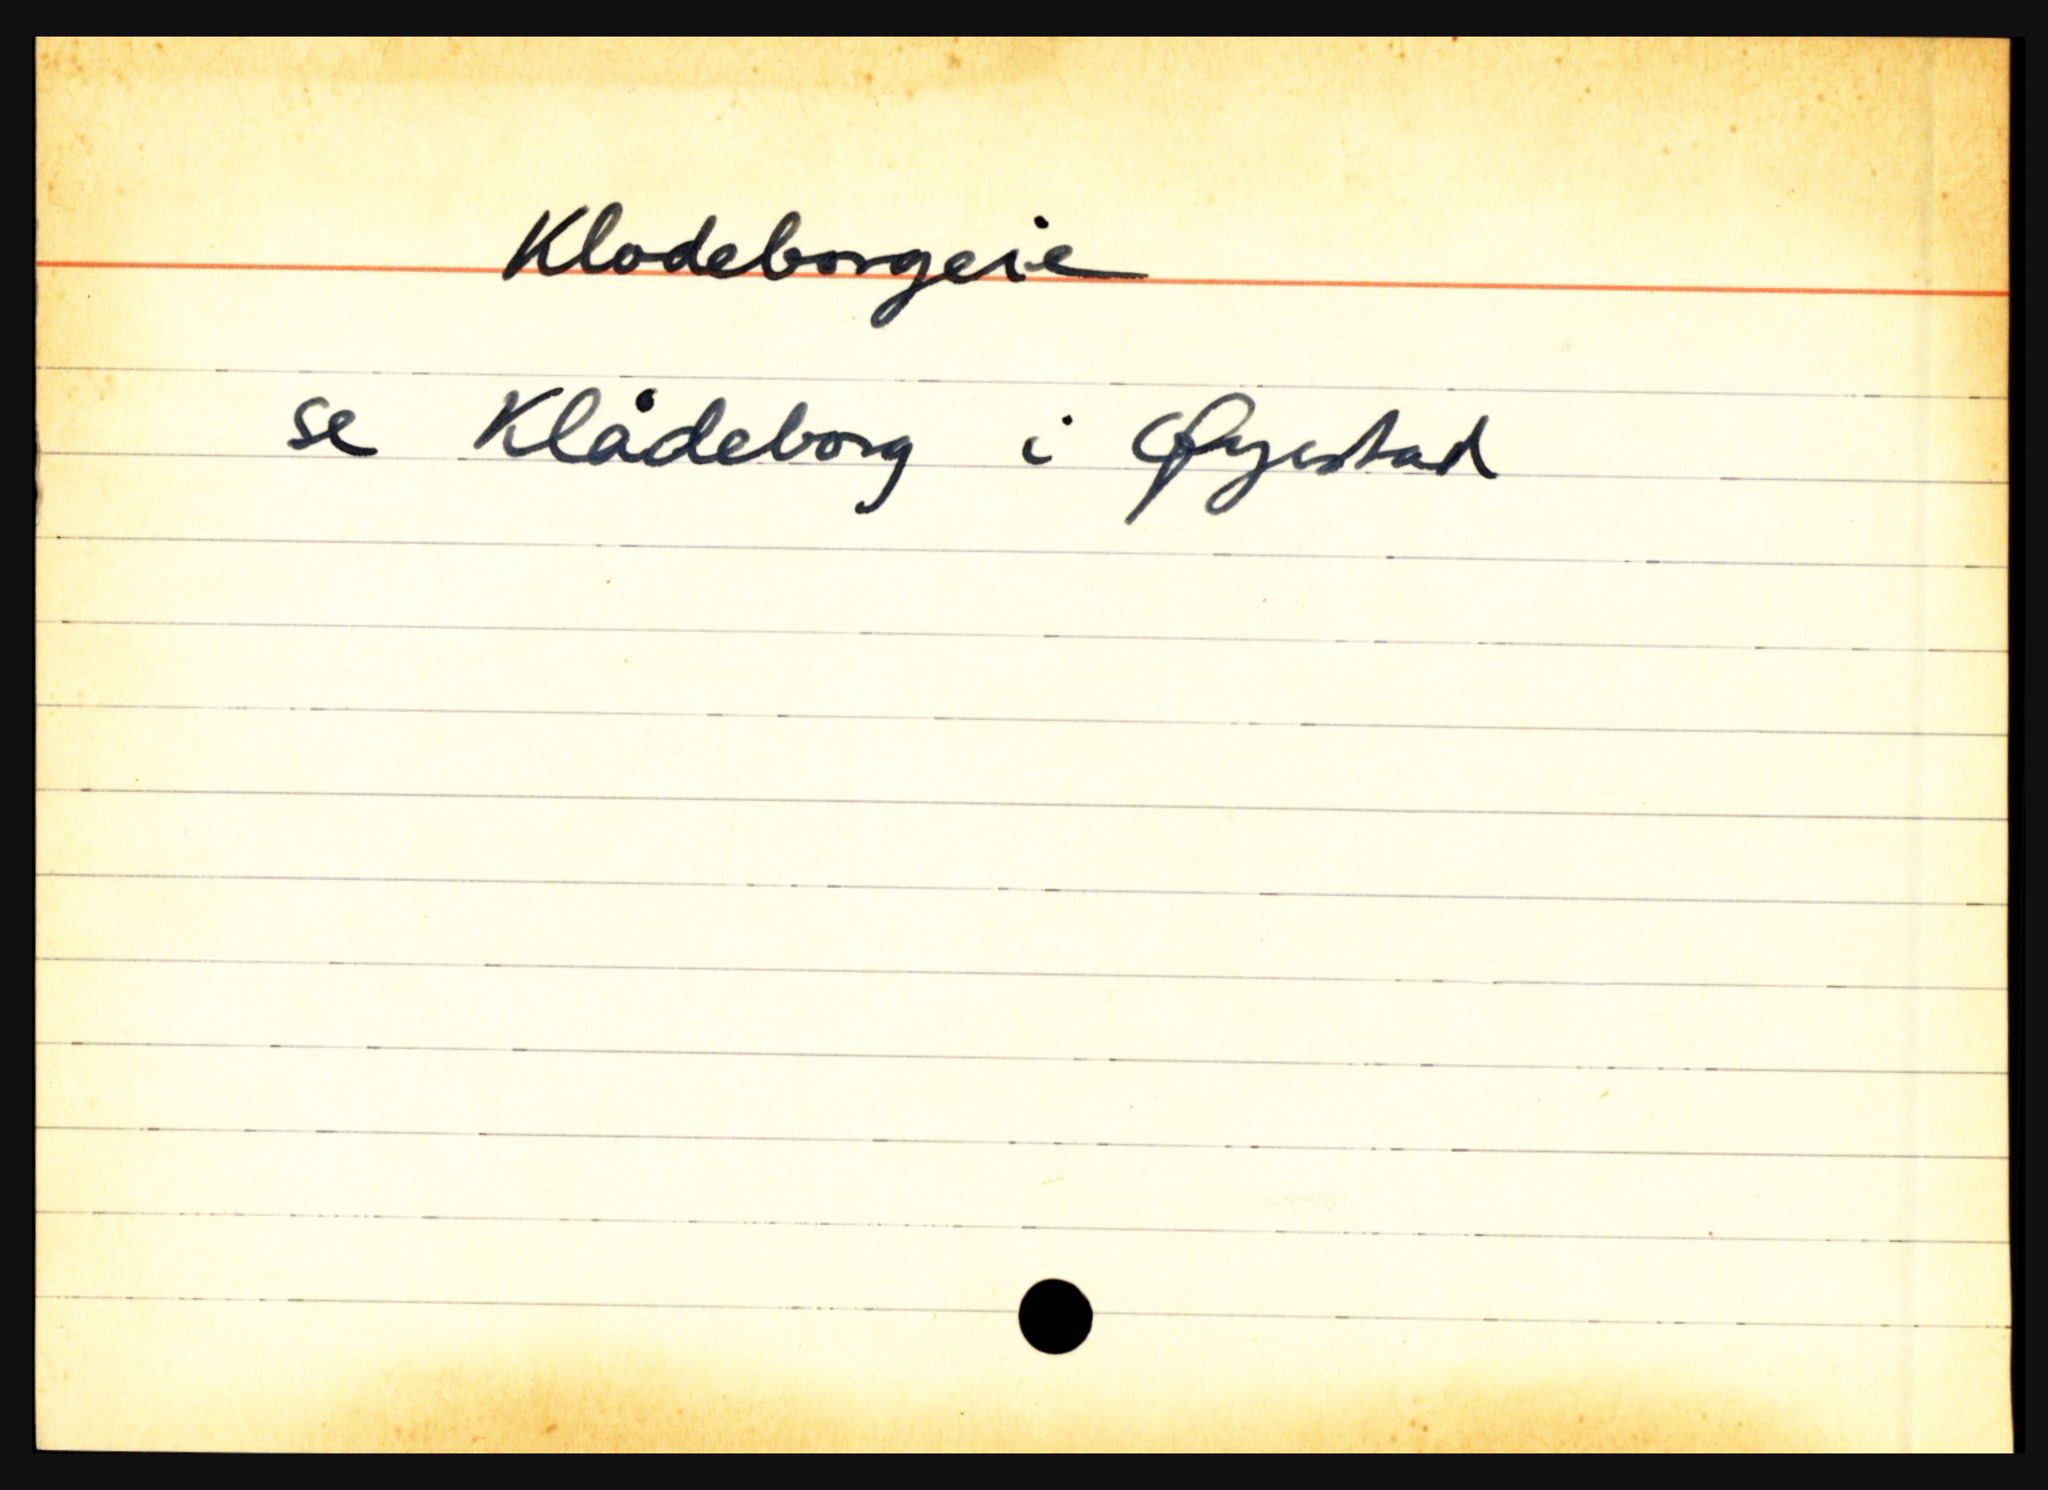 Klodeborgeie
se Klådeborg i Øyestad